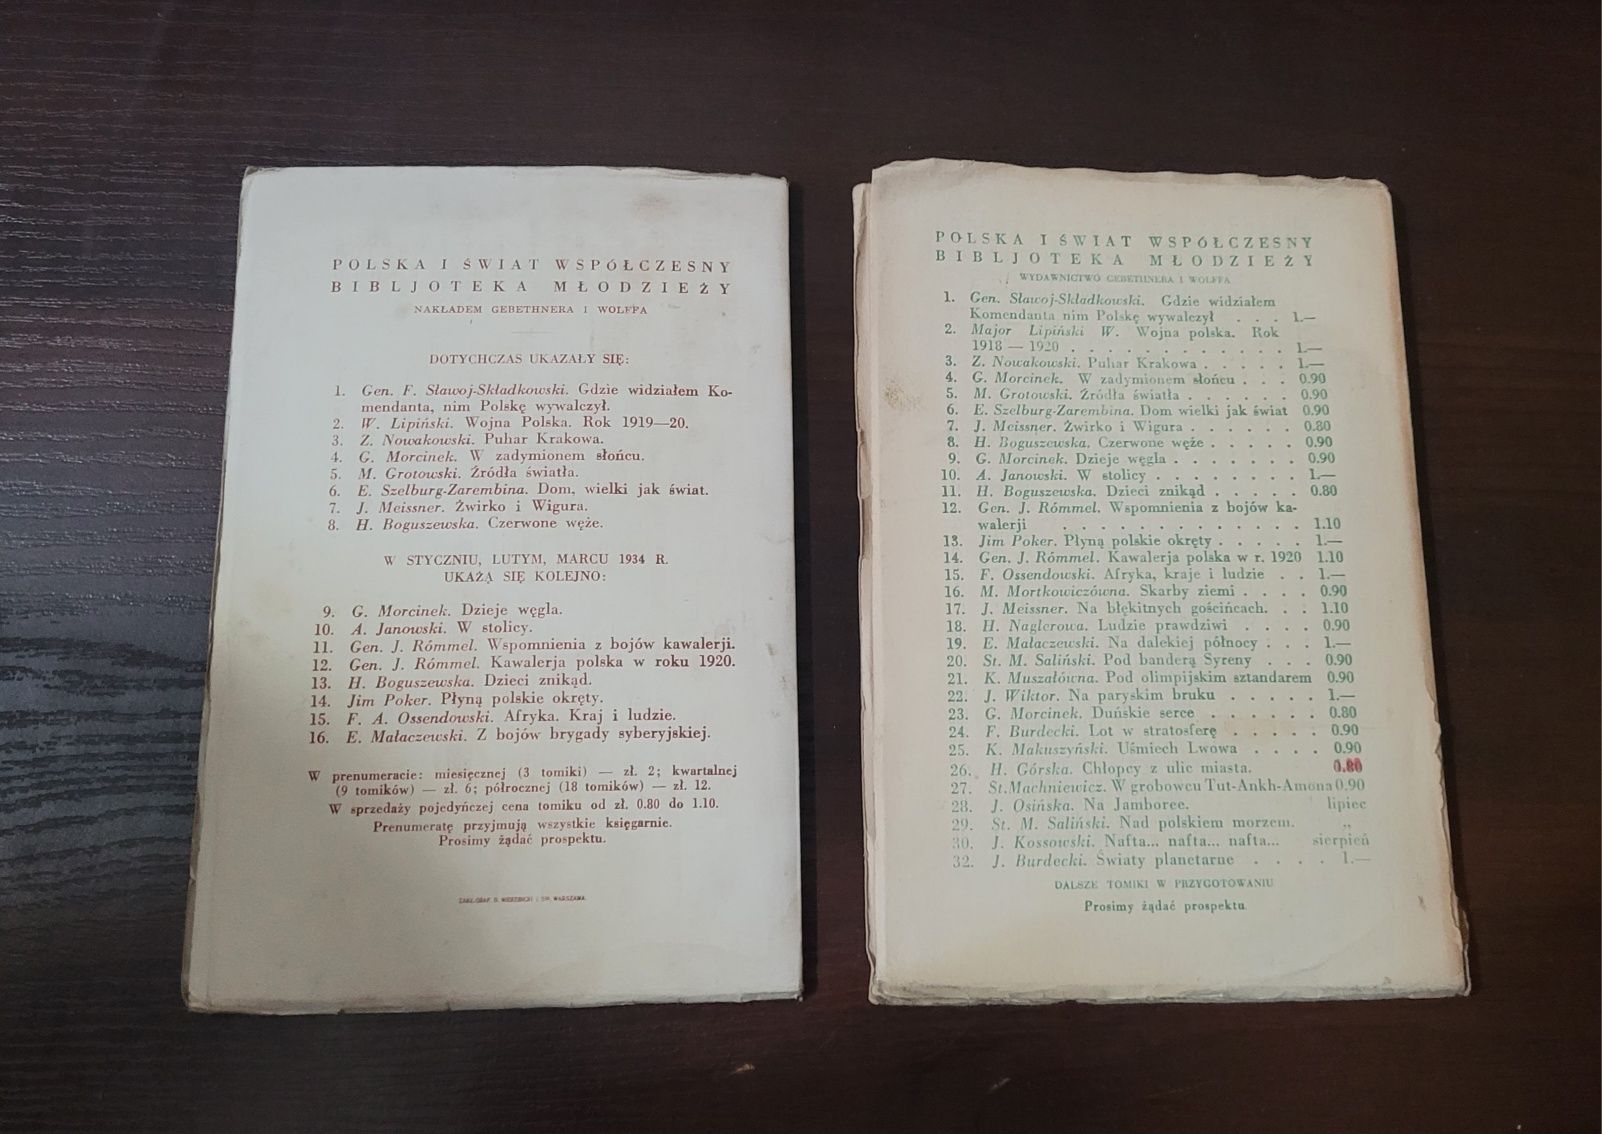 POLSKA I ŚWIAT WSPÓŁCZESNY
BIBLJOTEKA MŁODZIEŻY
NAKŁADEM GEBETHNERA I WOLFFA
DOTYCHCZAS UKAZAŁY SIĘ:
1. Gen. F. Sławoj-Składkowski. Gdzie widziałem Ko-
mendanta, nim Polskę wywalczył.
2. W. Lipiński. Wojna Polska. Rok 1919—20.
3. Z. Nowakowski. Puhar Krakowa.
4. G. Morcinek. W zadymionem słońcu.
5. M. Grotowski. Źródła światła.
6. E. Szelburg-Zarembina. Dom, wielki jak świat.
7. J. Meissner. Żwirko i Wigura.
8. H. Boguszewska. Czerwone węże.
W STYCZNIU, LUTYM, MARCU 1934 R.
UKAŻĄ SIĘ KOLEJNO:
9. G. Morcinek. Dzieje węgla.
10. A. Janowski. W stolicy.
11. Gen. J. Rómmel. Wspomnienia z bojów kawalerji.
12. Gen. J. Rómmel. Kawalerja polska w roku 1920.
13. H. Boguszewska. Dzieci znikąd.
14. Jim Poker. Płyną polskie okręty.
15. F. A. Ossendowski. Afryka. Kraj i ludzie.
16. E. Małaczewski. Z bojów brygady syberyjskiej.
W prenumeracie: miesięcznej (3 tomiki) — zł. 2; kwartalnej
(9 tomików) — zł. 6; półrocznej (18 tomików) — zł. 12.
W sprzedaży pojedyńczej cena tomiku od zł. 0.80 do 1.10.
Prenumeratę przyjmują wszystkie księgarnie.
Prosimy żądać prospektu.
ZAKŁ. GRAF. B. WIERZBICKI I S-KA WARSZAWA
POLSKA I ŚWIAT WSPÓŁCZESNY
BIBLJOTEKA MŁODZIEŻY
WYDAWNICTWO GEBETHNERA I WOLFFA
1. Gen. Sławoj-Składkowski. Gdzie widziałem
Komendanta nim Polskę wywalczył . . . 1.—
2. Major Lipiński W. Wojna polska. Rok
1918 — 1920 . . . . . . . . . . . . 1.—
3. Z. Nowakowski. Puhar Krakowa . . . . . 1.—
4. G. Morcinek. W zadymionem słońcu . . . 0.90
5. M. Grotowski. Źródła światła . . . . . . 0.90
6. E. Szelburg-Zarembina. Dom wielki jak świat 0.90
7. J. Meissner. Żwirko i Wigura . . . . . . 0.80
8. H. Boguszewska. Czerwone węże . . . . . 0.90
9. G. Morcinek. Dzieje węgla . . . . . . . 0.90
10. A. Janowski. W stolicy . . . . . . . . 1.—
11. H. Boguszewska. Dzieci znikąd . . . . . 0.80
12. Gen. J. Rómmel. Wspomnienia z bojów ka-
walerji . . . . . . . . . . . . . 1.10
13. Jim Poker. Płyną polskie okręty . . . . . 1.—
14. Gen. J. Rómmel. Kawalerja polska w r. 1920 1.10
15. F. Ossendowski. Afryka, kraje i ludzie . . 1.—
16. M. Mortkowiczówna. Skarby ziemi . . . . 0.90
17. J. Meissner. Na błękitnych gościńcach. . . 1.10
18. H. Naglerowa. Ludzie prawdziwi . . . . 0.90
19. E. Małaczewski. Na dalekiej północy . . . 1.—
20. St. M. Saliński. Pod banderą Syreny . . . 0.90
21. K. Muszałówna. Pod olimpijskim sztandarem 0.90
22. J. Wiktor. Na paryskim bruku . . . . . 1.—
23. G. Morcinek. Duńskie serce . . . . . . 0.80
24. F. Burdecki. Lot w stratosferę . . . . . 0.90
25. K. Makuszyński. Uśmiech Lwowa . . . . 0.90
26. H. Górska. Chłopcy z ulic miasta. 0.80
27. St. Machniewicz. W grobowcu Tut-Ankh-Amona 0.90
28. J. Osińska. Na Jamboree. lipiec
29. St. M. Saliński. Nad polskiem morzem. „
30. J. Kossowski. Nafta... nafta... nafta... sierpień
32. J. Burdecki. Światy planetarne . . . . 1.—
DALSZE TOMIKI W PRZYGOTOWANIU
Prosimy żądać prospektu